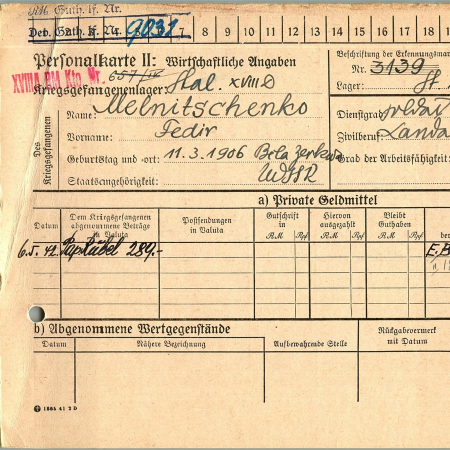 Guth. lf. Nr.
Dev. Guth. k. Nr. 9031 7 8 9 10 11 12 13 14 15 16 17 18 1
Personalkarte II: Wirtschaftliche Angaben
XVIIIA Kto. Nr.
Kriegsgefangenenlager: Stal. XVIII D
Beschriftung der Erkennungsmar
Nr. 3139
Lager: St.
Des Kriegsgefangenen
Name: Melnitschenko
Vorname: Fedir
Geburtstag und -ort: 11.3.1906 Bela Zerkwa
Staatsangehörigkeit:
Dienstgrad: soldat
Zivilberuf: Landa
Grad der Arbeitsfähigkeit:
a) Private Geldmittel
Datum
Dem Kriegsgefangenen abgenommene Beträge in Valuta
Postsendungen in Valuta
Gutschrift in
RM Rpf
Hiervon ausgezahlt
RM Rpf
Bleibt Guthaben
RM Rpf
be
6.5.42. Pap. Rubel 289.-
b) Abgenommene Wertgegenstände
Datum
Nähere Bezeichnung
Aufbewahrende Stelle
Rückgabevermerk mit Datum
1884 41 2 D